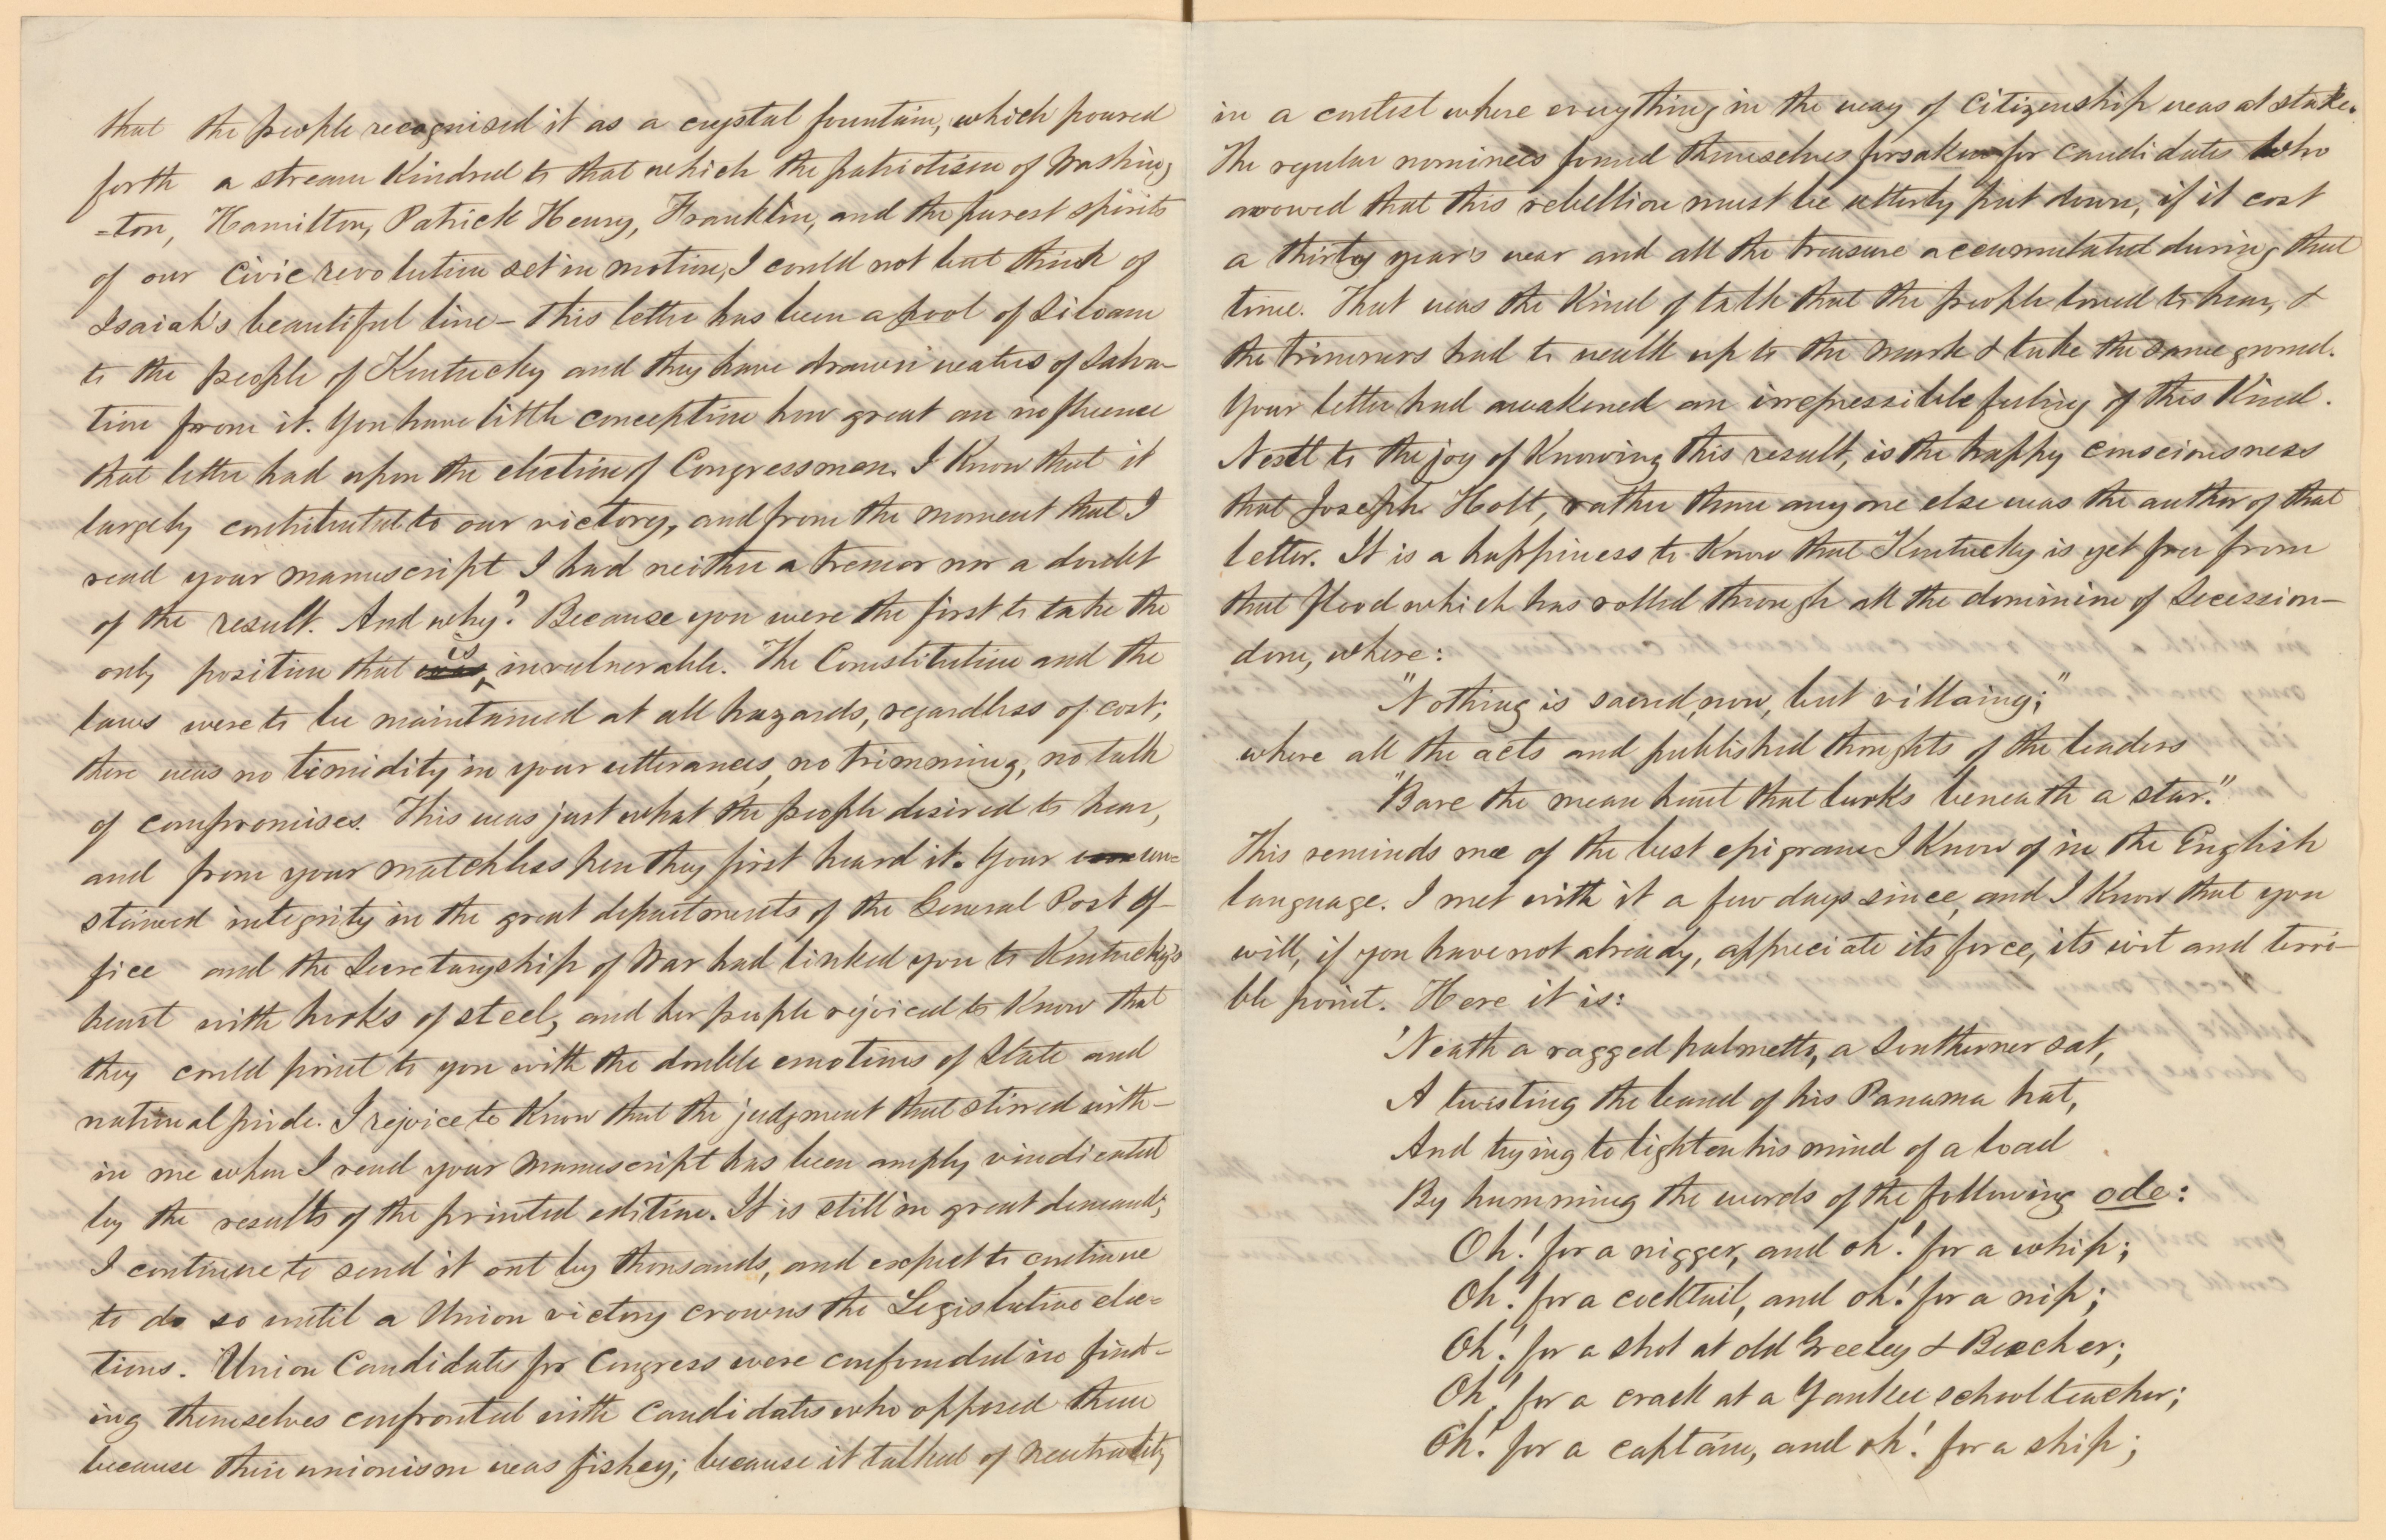 that the people recognised it as a crystal fountain, which poured
forth a stream Kindred to that which the patriotism of Washing
=ton, Hamilton, Patrick Henry, Franklin, and the purest spirits
of our Civic revolution set in motion, I could not but think of
Isaiah's beautiful line – this letter has been a pool of Siloam
to the people of Kentucky and they have drawn waters of Salva-
tion from it. You have little conception how great an influence
that letter had upon the election of Congressmen. I Know that it
largely contributed to our victory, and from the moment that I
read your manuscript I had neither a tremor nor a doubt
of the result. And why? Because you were the first to take the
only position that was is invulnerable. The Constitution and the
laws were to be maintained at all hazards, regardless of cost;
there was no timidity in your utterances, no trimming, no talk
of compromises. This was just what the people desired to hear,
and from your matchless pen they first heard it. Your un=
stained integrity in the great departments of the General Post Of-
fice and the Secretaryship of War had linked you to Kentucky's
heart with hooks of steel, and her people rejoiced to Know that
they could point to you with the double emotions of State and
national pride. I rejoice to Know that the judgment that stirred with-
in me when I read your manuscript has been amply vindicated
by the results of the printed edition. It is still in great demand;
I continue to send it out by thousands, and expect to continue
to do so until a Union victory crowns the Legislative elec=
tions. Union Candidates for Congress were confounded in find-
ing themselves confronted with Candidates who opposed them
because their unionism was fishey; because it talked of neutrality
in a contest where everything in the way of Citizenship was at stake.
The regular nominees found themselves forsaken for candidates who
avowed that this rebellion must be utterly put down, if it cost
a thirty year's war and all the treasure accumulated during that
time. That was the Kind of talk that the people loved to hear, &
the trimmers had to walk up to the mark & take the same ground.
Your letter had awakened an irrepressible feeling of this Kind.
Next to the joy of Knowing this result, is the happy consciousness
that Joseph Holt, rather than any one else was the author of that
letter. It is a happiness to Know that Kentucky is yet free from
that flood which has rolled through all the dominion of Secession-
dom, where:
"Nothing is sacred, now, but villainy;"
where all the acts and published thoughts of the leaders
"Bare the mean heart that lurks beneath a star."
This reminds me of the best epigram I Know of in the English
language. I met with it a few days since, and I Know that you
will, if you have not already, appreciate its force, its wit and terri-
ble point. Here it is:
'Neath a ragged palmetto, a Southerner sat,
A twisting the band of his Panama hat,
And trying to lighten his mind of a load
By humming the words of the following ode:
Oh! for a nigger, and oh! for a whip;
Oh! for a cocktail, and oh! for a nip;
Oh! for a shot at old Greeley & Beecher;
Oh! for a crack at a Yankee school teacher;
Oh! for a captain, and oh! for a ship;